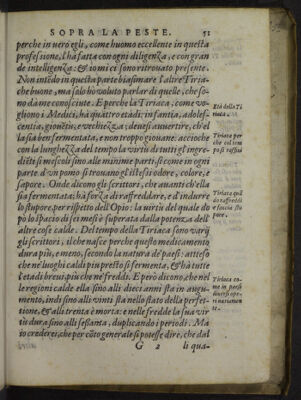 SOPRA LA PESTE. 51
perche in uero egli, come huomo eccellente in questa
professione, l'ha fatta con ogni diligenza, e con gran
de intelligenza: & io mi ci sono ritrouato presente.
Non intẽdo in questa parte biasimare l'altre Tiria-
che buone, ma solo ho voluto parlar di quelle, che so-
no da me conosciute. E perche la Tiriaca, come vo-
gliono i Medici, hà quattro etadi; infantia, adole-
scentia, giouẽtù, e vecchiezza; deuesi auuertire, ch'el
la sia ben fermentata, e non troppo giouane: accioche
con la lunghezza del tempo la virtù di tutti gl'ingre-
diẽti si mescoli sino alle minime parti: si come in ogni
parte d'vn pomo si trouano gl'istessi odore, colore, e
sapore. Onde dicono gli scrittori, che auanti ch'ella
sia fermentata; hà forza di raffreddare, e d'indurre
lo stupore, per rispetto dell'Opio: la uirtù del quale do
po lo spacio di sei mesi è superata dalla potenza dell'
altre cose calde. Del tempo della Tiriaca sono varij
gli scrittori, il che nasce perche questo medicamento
dura piu, e meno, secondo la natura de' paesi: atteso
che ne' luoghi caldi piu presto si fermenta, & hà tutte
l'etadi breui, più che ne' freddi. E però dicono, che nel
le regioni calde ella sino alli dieci anni stà in augu-
mento, indi sino alli vinti stà nello stato della perfet-
tione, & alli trenta è morta: e nelle fredde la sua vir
tù dura sino alli sessanta, duplicando i periodi. Ma
io crederei, che per cõto generale si potesse dire, che dal
G 2 li qua-
Età della Ti
riaca.
Tiriaca per
che col tem
po si
Tiriaca quã
do raffreddi
e faccia stu
pore.
Tiriaca co-
me in paesi
diuersi ope-
ri